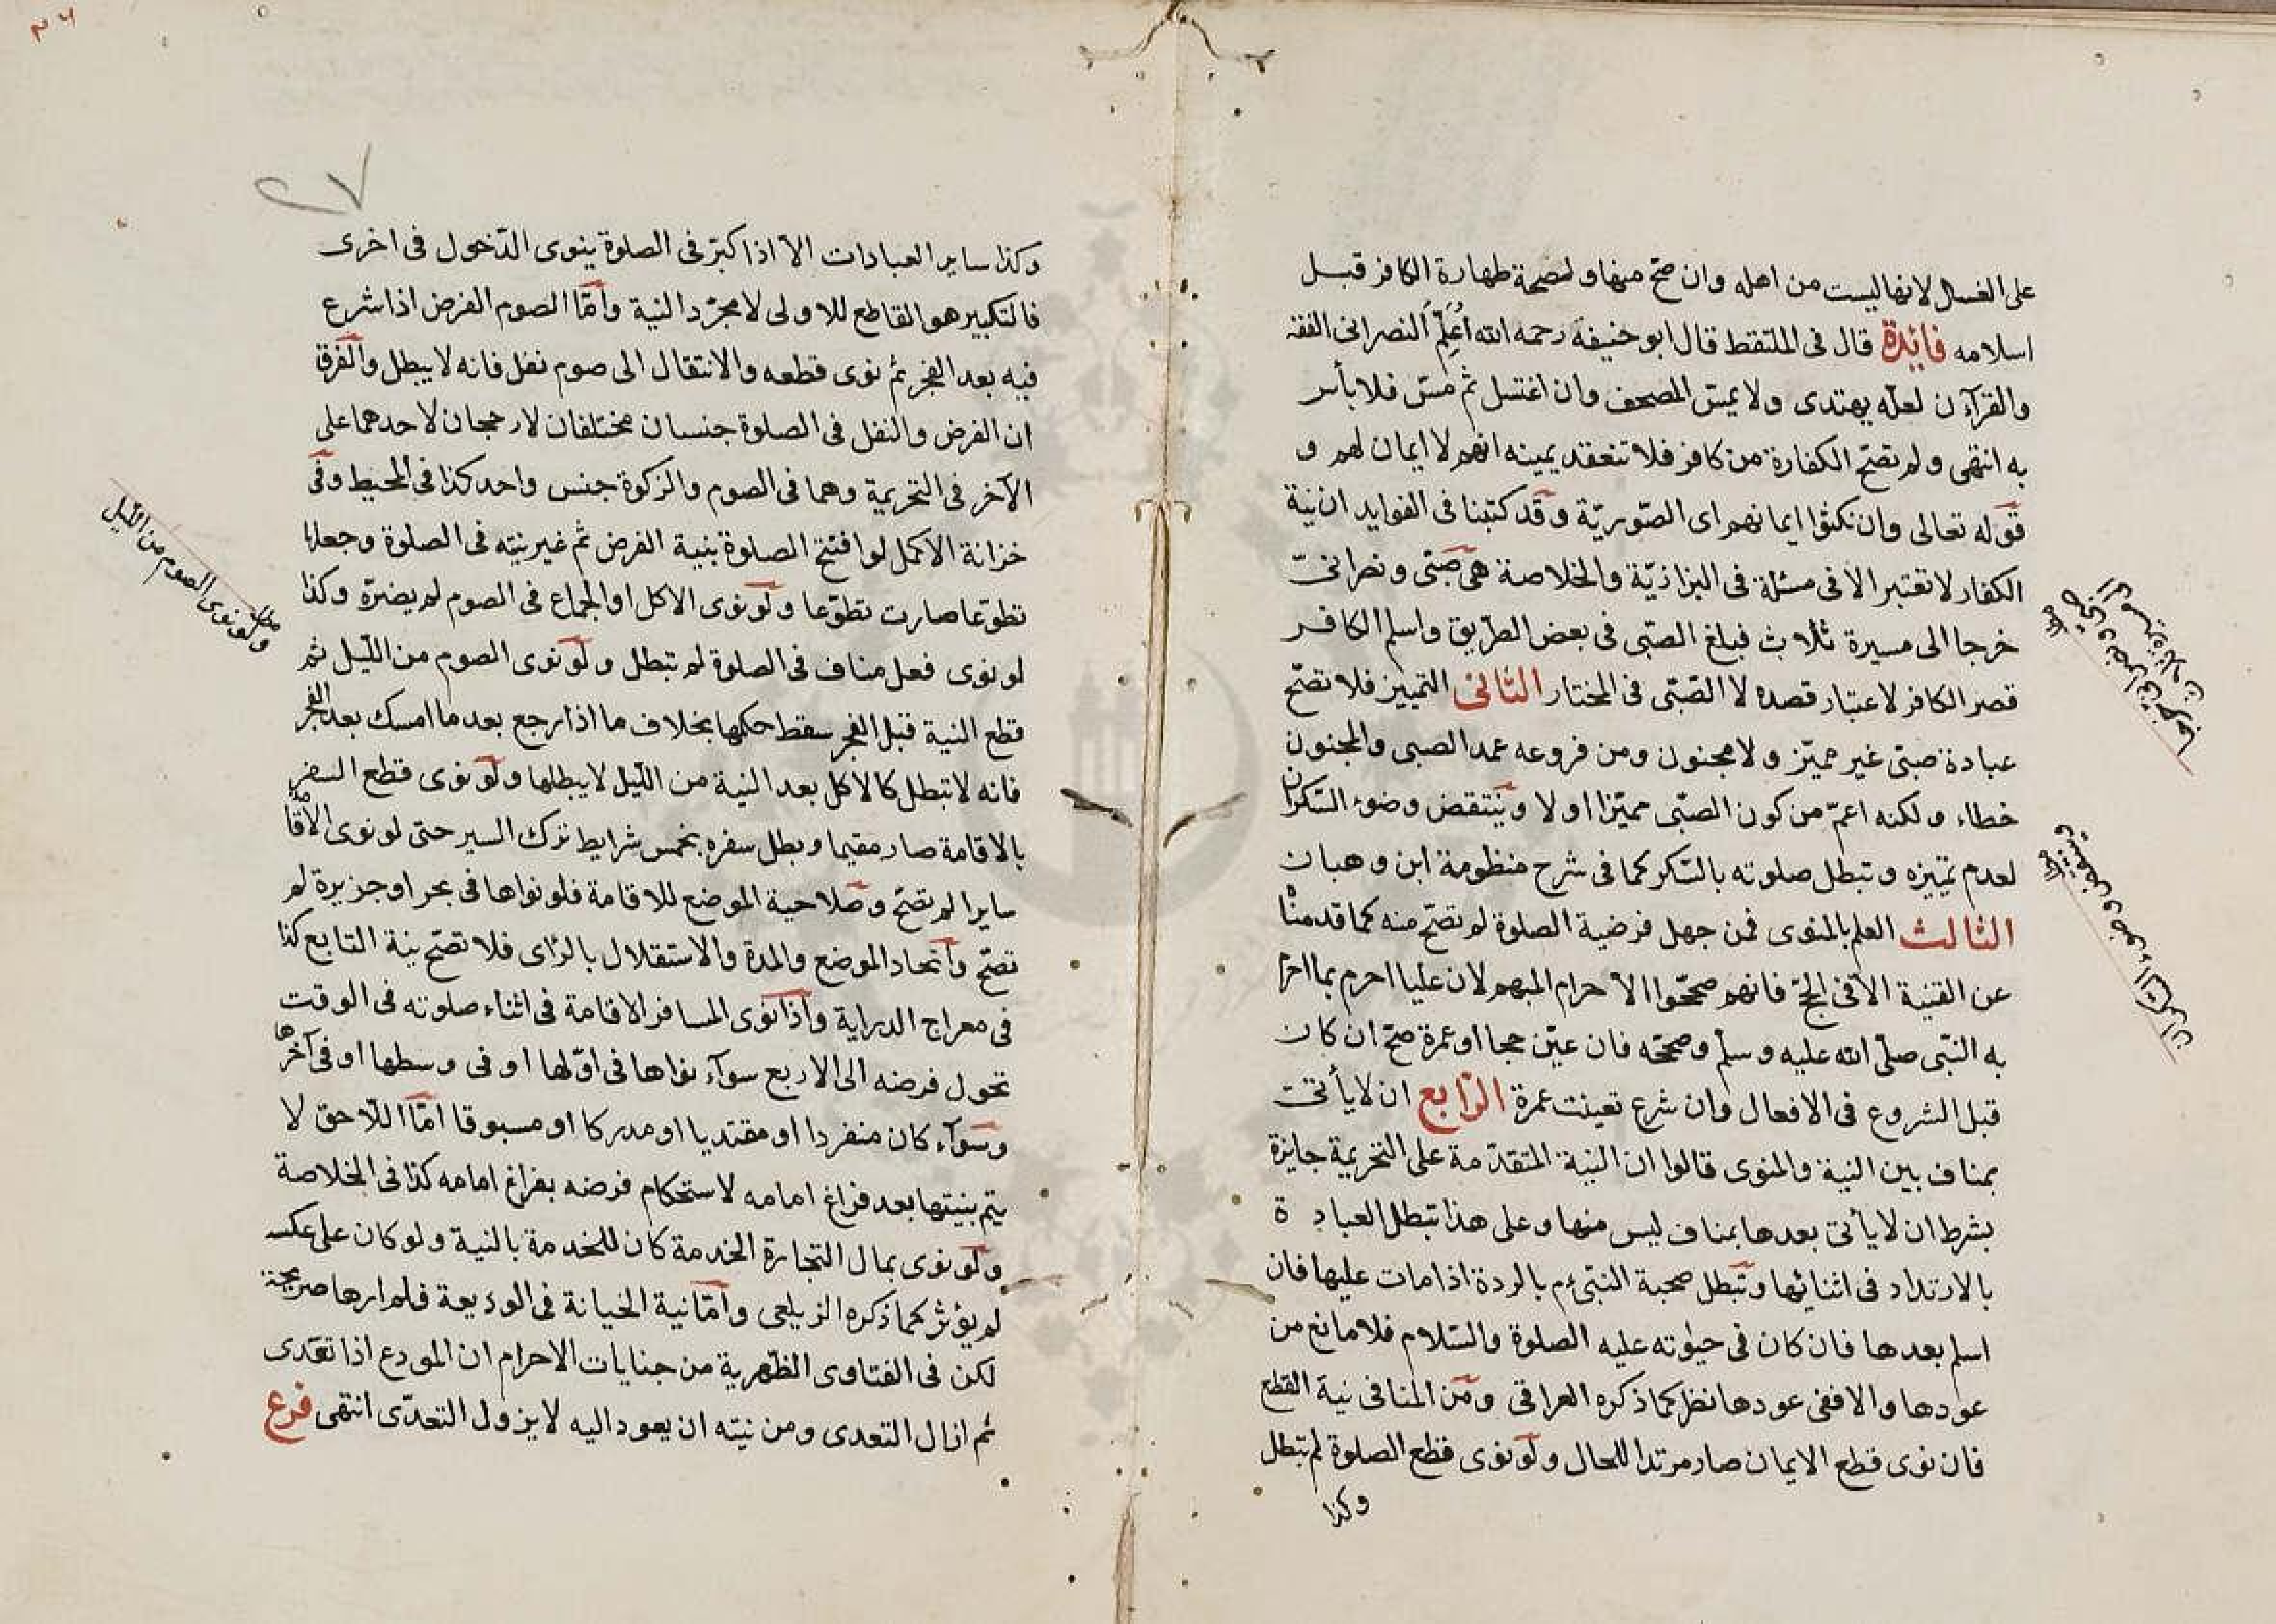 على الغسل لانها ليست من اهله وان صح منها ولصحة طهارة الكافر قبل
اسلامه فائدة قال فى الملتقط قال ابو حنيفة رحمه الله أُعَلِّمُ النصرانى الفقه
والقرآن لعله يهتدى ولا يمسّ المصحف وان اغتسل ثم مسّ فلا بأس
به انتهى ولم تصحّ الكفارة من كافر فلا تنعقد يمينه انهم لا ايمان لهم و
قوله تعالى وان نكثوا ايمانهم اى الصّوريّة وقد كتبنا فى الفوايد ان نية
الكفار لا تعتبر الا فى مسئلة فى البزازيّة والخلاصة هى صبّى ونصرانىّ
خرجا الى مسيرة ثلاث فبلغ الصبّى فى بعض الطريق واسلم الكافر
قصر الكافر لاعتبار قصده لا الصّبّى فى المختار الثانى التمييز فلا تصحّ
عبادة صبّى غير مميّز ولا مجنون ومن فروعه عمد الصبى والمجنون
خطاء ولكنه اعمّ من كون الصبّى مميّزا او لا وينتقض وضوء السّكران
لعدم تمييزه وتبطل صلوته بالسّكر كما فى شرح منظومة ابن وهبان
الثالث العلم بالمنوى فمن جهل فرضية الصلوة لم تصحّ منه كما قدمناه
عن القنية الا فى الحجّ فانهم صحّحوا الاحرام المبهم لان عليا احرم بما احرم
به النبّى صلّى الله عليه وسلّم وصحّحه فان عيّن حجا او عمرة صحّ ان كان
قبل الشروع فى الافعال وان شرع تعينت عمرة الرّابع ان لا يأتى
بمناف بين النية والمنوى قالوا ان النية المتقدّمة على التحريمة جايزة
بشرط ان لا يأتى بعدها بمناف ليس منها وعلى هذا تبطل العبادة
بالارتداد فى اثنائها وتبطل صحبة النبّى عم بالردة اذا مات عليها فان
اسلم بعدها فان كان فى حيوته عليه الصلوة والسّلام فلا مانع من
عودها والا ففى عودها نظر كما ذكره العراقى ومن المنافى نية القطع
فان نوى قطع الايمان صار مرتدا للحال ولو نوى قطع الصلوة لم تبطل
وكذا
وكذا ساير العبادات الا اذا كبّر فى الصلوة ينوى الدّخول فى اخرى
فالتكبير هو القاطع للاولى لا مجرّد النية وامّا الصوم الفرض اذا شرع
فيه بعد الفجر ثم نوى قطعه والانتقال الى صوم نفل فانه لا يبطل والفرق
ان الفرض والنفل فى الصلوة جنسان مختلفان لا رجحان لاحدهما على
الآخر فى التحريمة وهما فى الصوم والزكوة جنس واحد كذا فى المحيط وفى
خزانة الاكمل لو افتتح الصلوة بنية الفرض ثم غير نيته فى الصلوة وجعلها
تطوّعا صارت تطوّعا ولو نوى الاكل او الجماع فى الصوم لم يضرّه وكذا
لو نوى فعل مناف فى الصلوة لم تبطل ولو نوى الصوم من اللّيل ثم
قطع النية قبل الفجر سقط حكمها بخلاف ما اذا رجع بعد ما امسك بعد الفجر
فانه لا تبطل كالاكل بعد النية من اللّيل لا يبطلها ولو نوى قطع السفر
بالاقامة صار مقيما وبطل سفره بخمس شرايط ترك السير حتى لو نوى الاقامة
سايرا لم تصحّ وصلاحية الموضع للاقامة فلو نواها فى بحر او جزيرة لم
تصحّ واتّحاد الموضع والمدة والاستقلال بالرّاى فلا تصحّ نية التابع كذا
فى معراج الدراية واذا نوى المسافر الاقامة فى اثناء صلوته فى الوقت
تحول فرضه الى الاربع سوآء نواها فى اوّلها او فى وسطها او فى آخرها
وسوآء كان منفردا او مقتديا او مدركا او مسبوقا امّا اللّاحق لا
يتم بنيتها بعد فراغ امامه لاستحكام فرضه بفراغ امامه كذا فى الخلاصة
ولو نوى بمال التجارة الخدمة كان للخدمة بالنية ولو كان على عكسه
لم يؤثر كما ذكره الزيلعى وامّا نية الخيانة فى الوديعة فلم ارها صريحة
لكن فى الفتاوى الظّهرية من جنايات الاحرام ان المودع اذا تعّدى
ثم ازال التعدى ومن نيته ان يعود اليه لا يزول التعدّى انتهى فرع
٢٧
مطلب ولو نوى الصوم من اللّيل
مطلب
مطلب وينتقض وضوء السكران